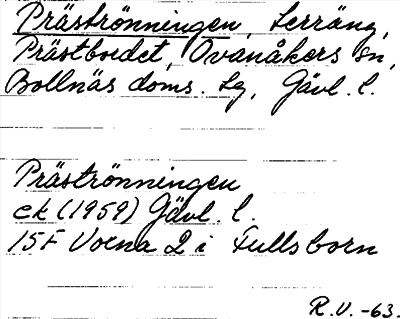 Präströnningen, Terräng,
Prästbordet, Ovanåkers sn,
Bollnäs doms. lg, Gävl. l.
Präströnningen
ek (1959) Gävl. l.
15F Voxna 2 i Fullsborn
R.V. -63.